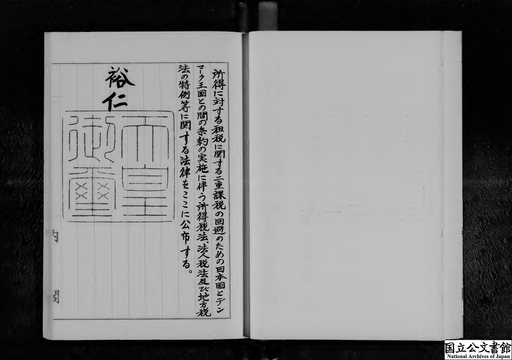 所得に対する租税に関する二重課税の回避のための日本国とデン
マーク王国との間の条約の実施に伴う所得税法、法人税法及び地方税
法の特例等に関する法律をここに公布する。
裕仁
天皇
御璽
内閣
国立公文書館
National Archives of Japan